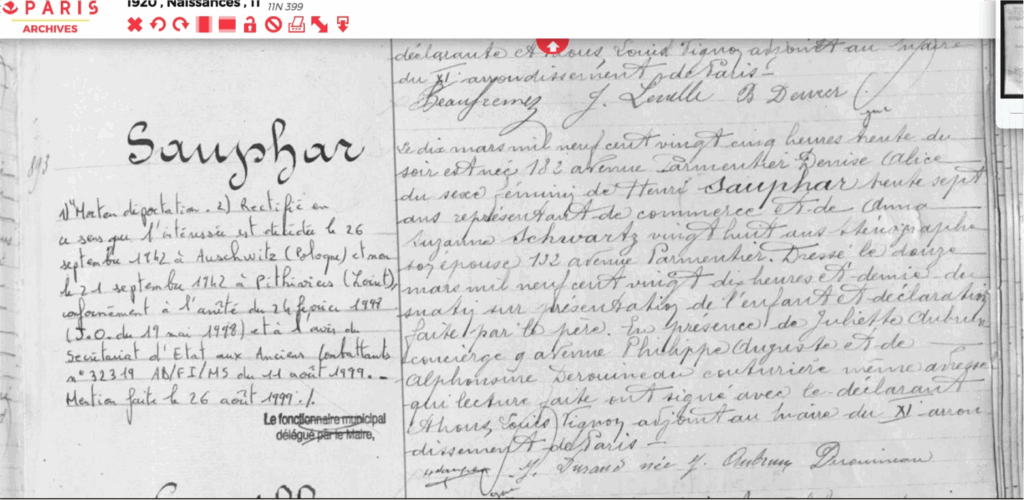 PARIS
ARCHIVES
1920 , Naissances , 11 11N 399
déclarante et Nous, Louis Vignon adjoint au maire
du XI arrondissement de Paris -
Beaufremez J. Lecelle
893
Sauphar
Le dix mars mil neuf cent vingt cinq heures trente du
soir est née 132 avenue Parmentier Denise Alice
du sexe féminin de Henri Sauphar trente sept
ans représentant de commerce et de Anna
Suzanne Schwartz vingt huit ans sténographe
son épouse 132 avenue Parmentier. Dressé le douze
mars mil neuf cent vingt dix heures et demie du
matin sur présentation de l'enfant et déclaration
faite par le père. En présence de Juliette
concierge 9 avenue Philippe Auguste et de
Alphonsine Derouineau couturière même adresse
qui lecture faite ont signé avec le déclarant
Nous, Louis Vignon adjoint au maire du XI arron
dissement de Paris -
J. Durand née J. Derouineau
1) "Mort en déportation. 2) Rectifié en
ce sens que l'intéressée est décédée le 26
septembre 1942 à Auschwitz (Pologne) et non
le 21 septembre 1942 à Pithiviers (Loiret),
conformément à l'arrêté du 24 février 1998
(J.O. du 19 mai 1998) et à l'avis du
Secrétariat d'Etat aux Anciens Combattants
n° 32319 AD/FI/MS du 11 août 1999. -
Mention faite le 26 août 1999./.
Le fonctionnaire municipal
délégué par le Maire,